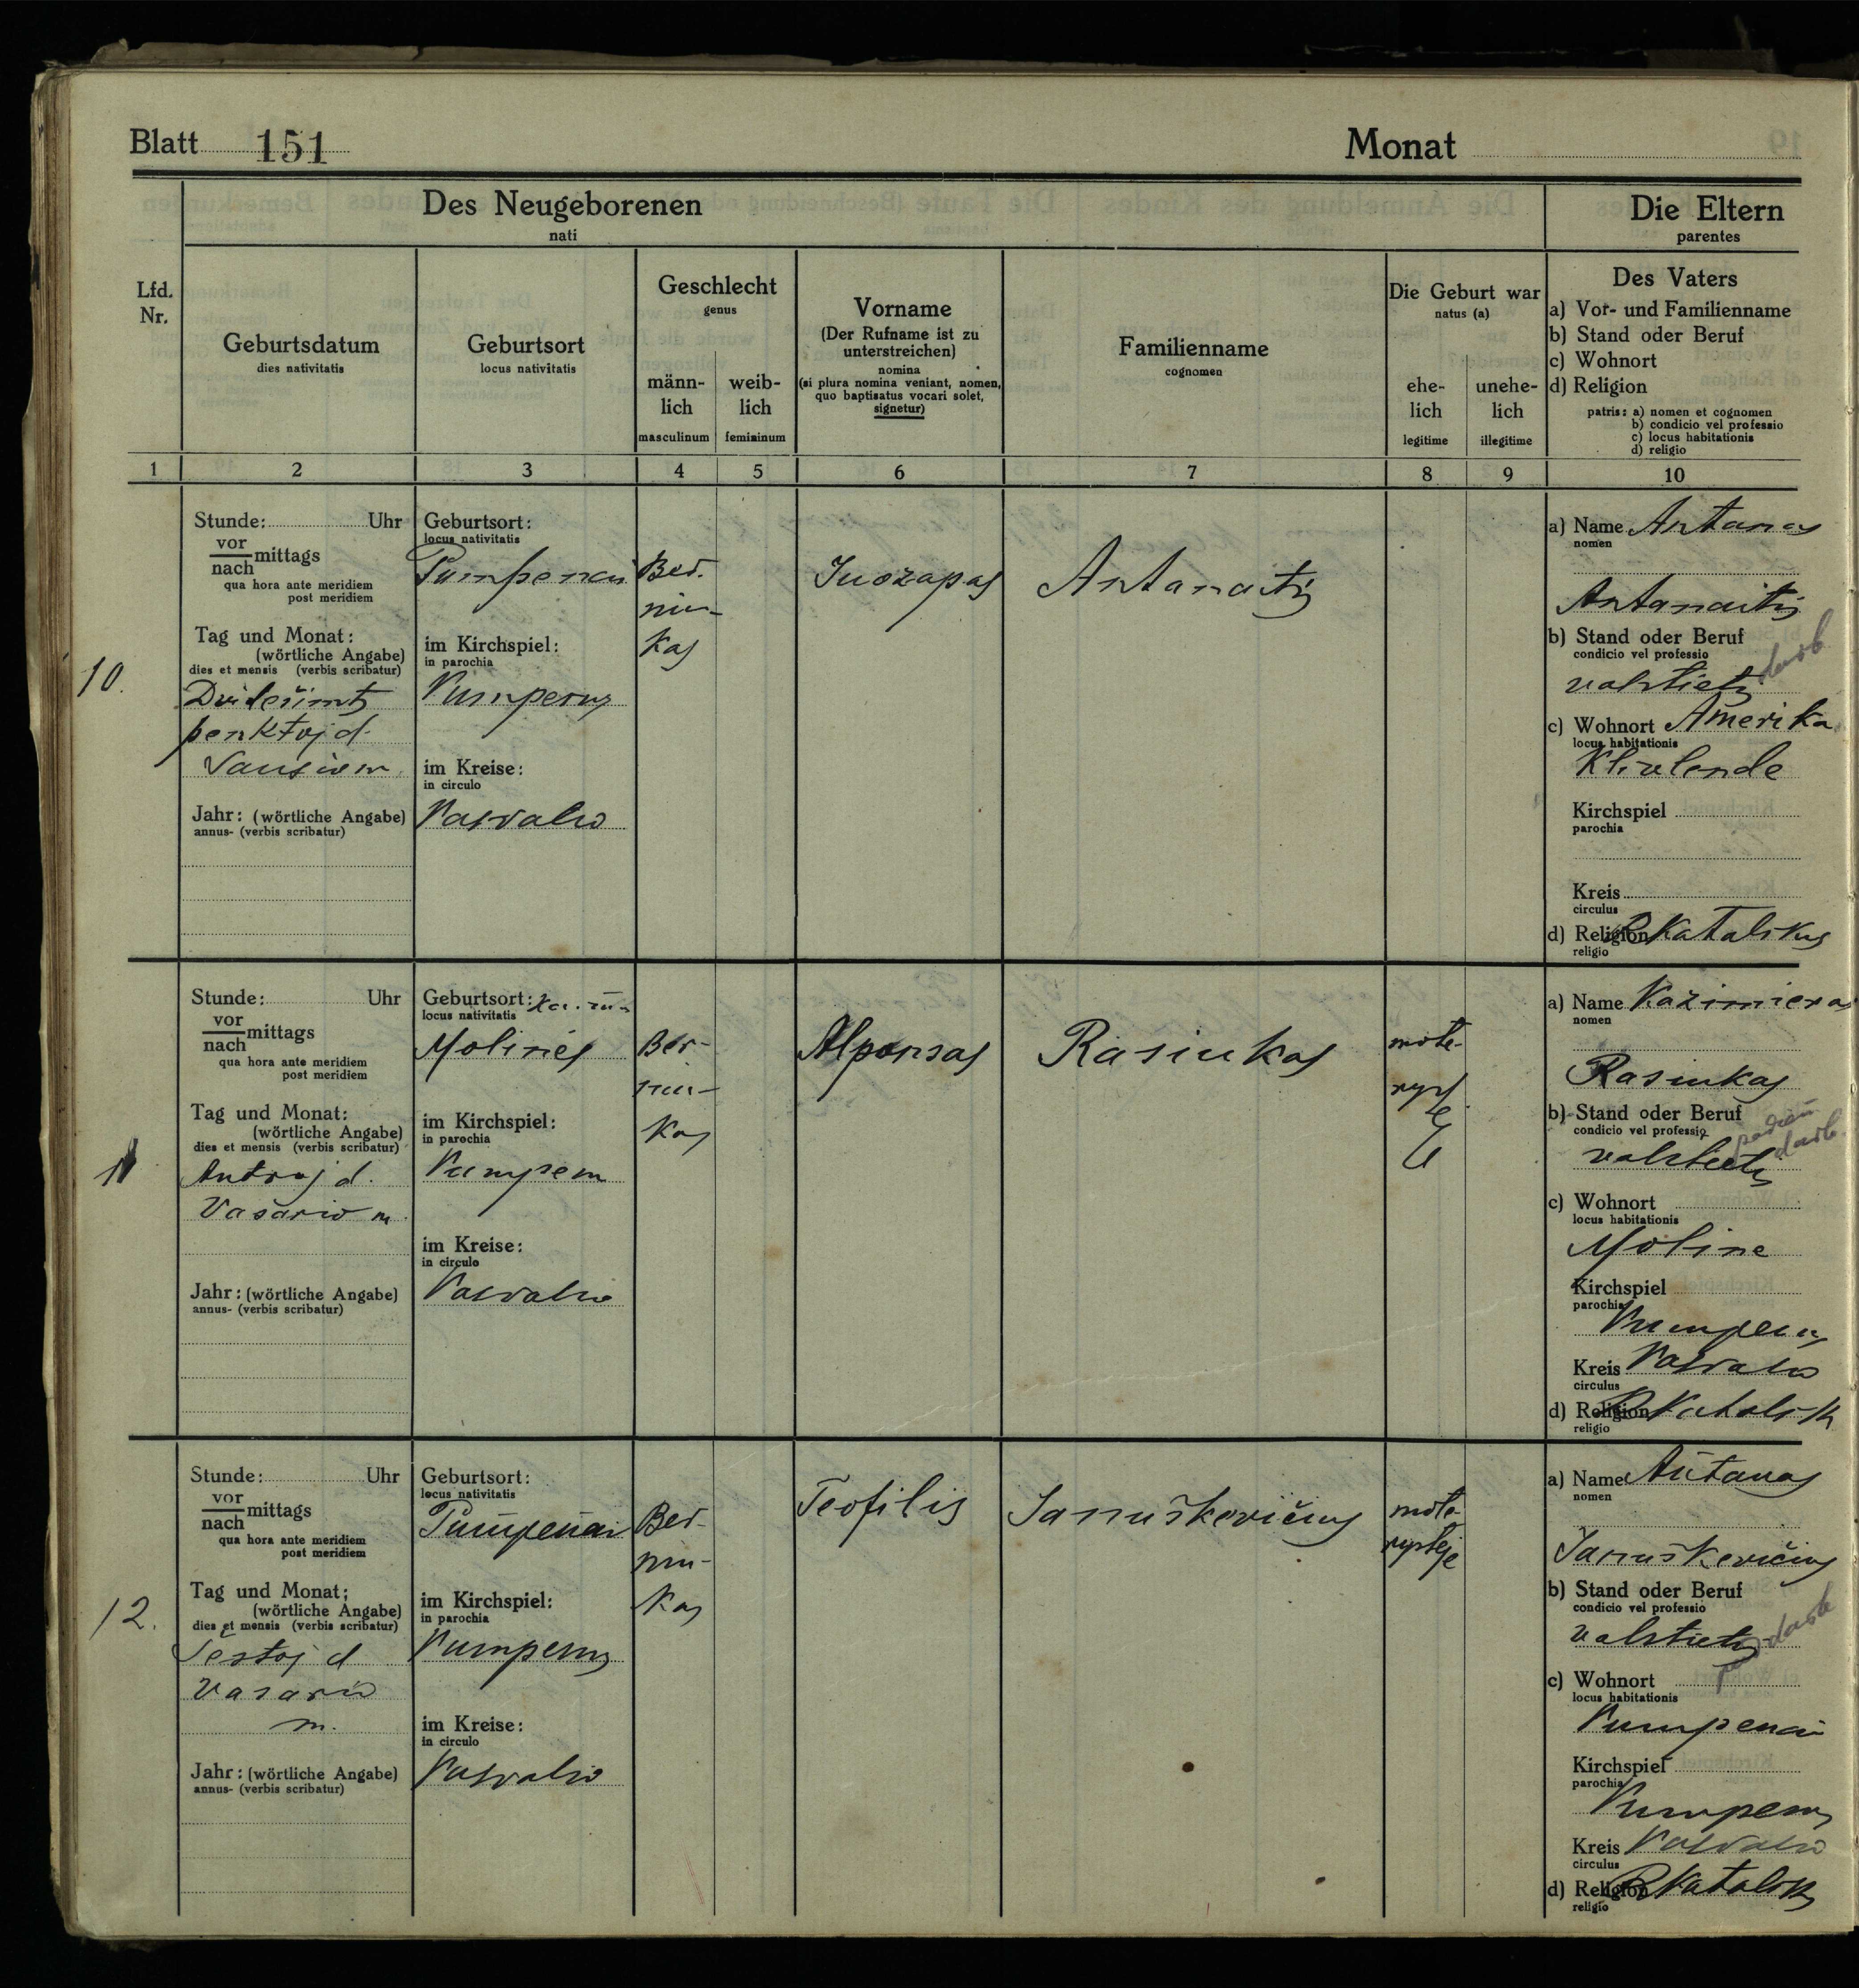 Blatt 151
Monat
Des Neugeborenen
nati
Die Eltern
parentes
Lfd.
Nr.
Geburtsdatum
dies nativitatis
Geburtsort
locus nativitatis
Geschlecht
genus
männ-
lich
masculinum
weib-
lich
femininum
Vorname
(Der Rufname ist zu
unterstreichen)
nomina
(si plura nomina veniant, nomen,
quo baptisatus vocari solet,
signetur)
Familienname
cognomen
Die Geburt war
natus (a)
ehe-
lich
legitime
unehe-
lich
illegitime
Des Vaters
a) Vor- und Familienname
b) Stand oder Beruf
c) Wohnort
d) Religion
patris: a) nomen et cognomen
b) condicio vel professio
c) locus habitationis
d) religio
1 2 3 4 5 6 7 8 9 10
10.
Stunde: Uhr
vor
nach mittags
qua hora ante meridiem
post meridiem
Tag und Monat:
(wörtliche Angabe)
dies et mensis (verbis scribatur)
penktoj d.
Sausio m.
Jahr: (wörtliche Angabe)
annus- (verbis scribatur)
Geburtsort:
locus nativitatis
Pumpenai
im Kirchspiel:
in parochia
Pumpenų
im Kreise:
in circulo
Pasvalio
Ber-
niu-
kas
Juozapas
Antanaitis
a) Name Antanas
nomen
Antanaitis
b) Stand oder Beruf
condicio vel professio
valstietis darb
c) Wohnort Amerika
locus habitationis
Klivlende
Kirchspiel
parochia
Kreis
circulus
d) Religion R Katalikas
religio
11
Stunde: Uhr
vor
nach mittags
qua hora ante meridiem
post meridiem
Tag und Monat:
(wörtliche Angabe)
dies et mensis (verbis scribatur)
Antroj d.
Vasario m.
Jahr: (wörtliche Angabe)
annus- (verbis scribatur)
Geburtsort:
locus nativitatis
Molinės
im Kirchspiel:
in parochia
Pumpenų
im Kreise:
in circulo
Pasvalio
Ber-
niu-
kas
Alponsas
Rasiukas
mote-
ryst
a) Name Kazimieras
nomen
Rasiukas
b) Stand oder Beruf
condicio vel professio
valstietis darb
c) Wohnort
locus habitationis
Moline
Kirchspiel
parochia
Pumpenų
Kreis Pasvalio
circulus
d) Religion R Katalik
religio
12.
Stunde: Uhr
vor
nach mittags
qua hora ante meridiem
post meridiem
Tag und Monat:
(wörtliche Angabe)
dies et mensis (verbis scribatur)
Šeštoj d
Vasario
m.
Jahr: (wörtliche Angabe)
annus- (verbis scribatur)
Geburtsort:
locus nativitatis
Pumpenai
im Kirchspiel:
in parochia
Pumpenų
im Kreise:
in circulo
Pasvalio
Ber-
niu-
kas
Teofilis
Januškevičius
mote-
rystėje
a) Name Antanas
nomen
Januškevičius
b) Stand oder Beruf
condicio vel professio
valstietis darb
c) Wohnort
locus habitationis
Pumpenai
Kirchspiel
parochia
Pumpenų
Kreis Pasvalio
circulus
d) Religion R Katalikas
religio